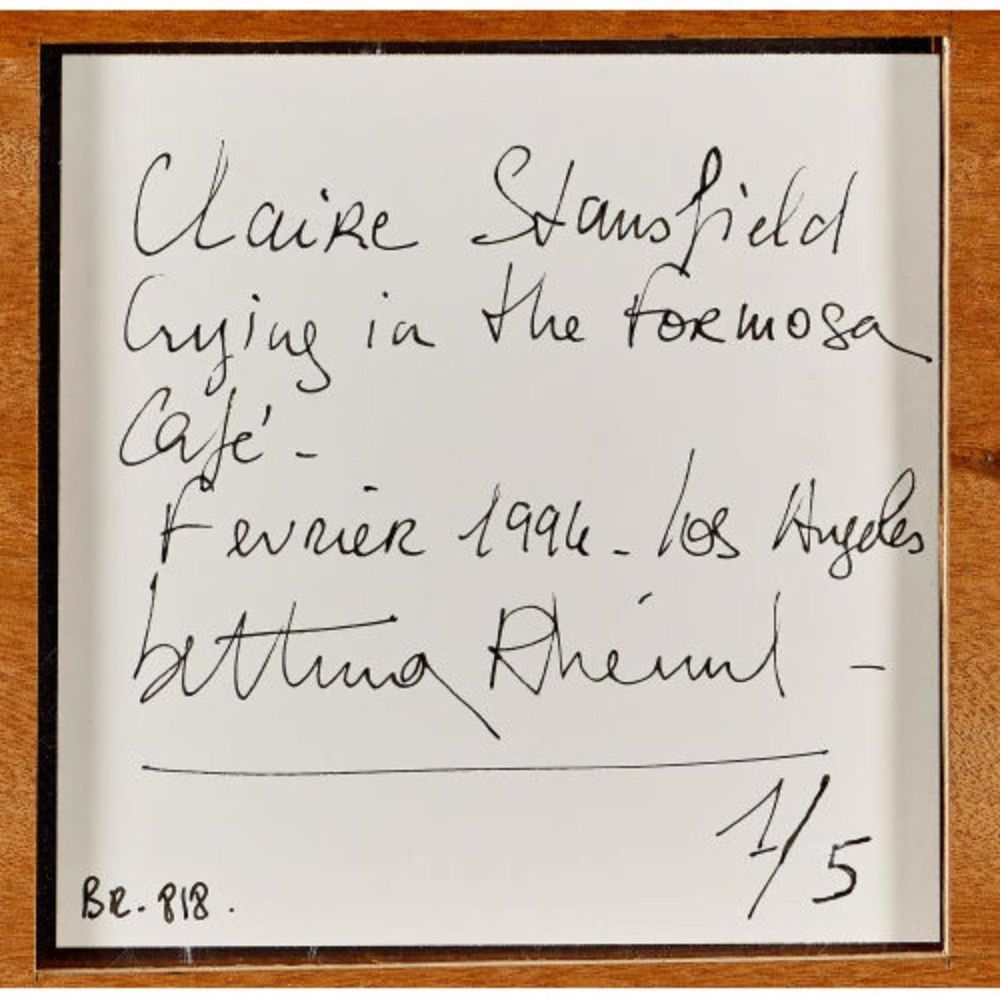 Claire Stansfield
Crying in the Formosa
Café -
Fevrier 1994 - Los Angeles
bettina Rheims -
1/5
BR. 818.